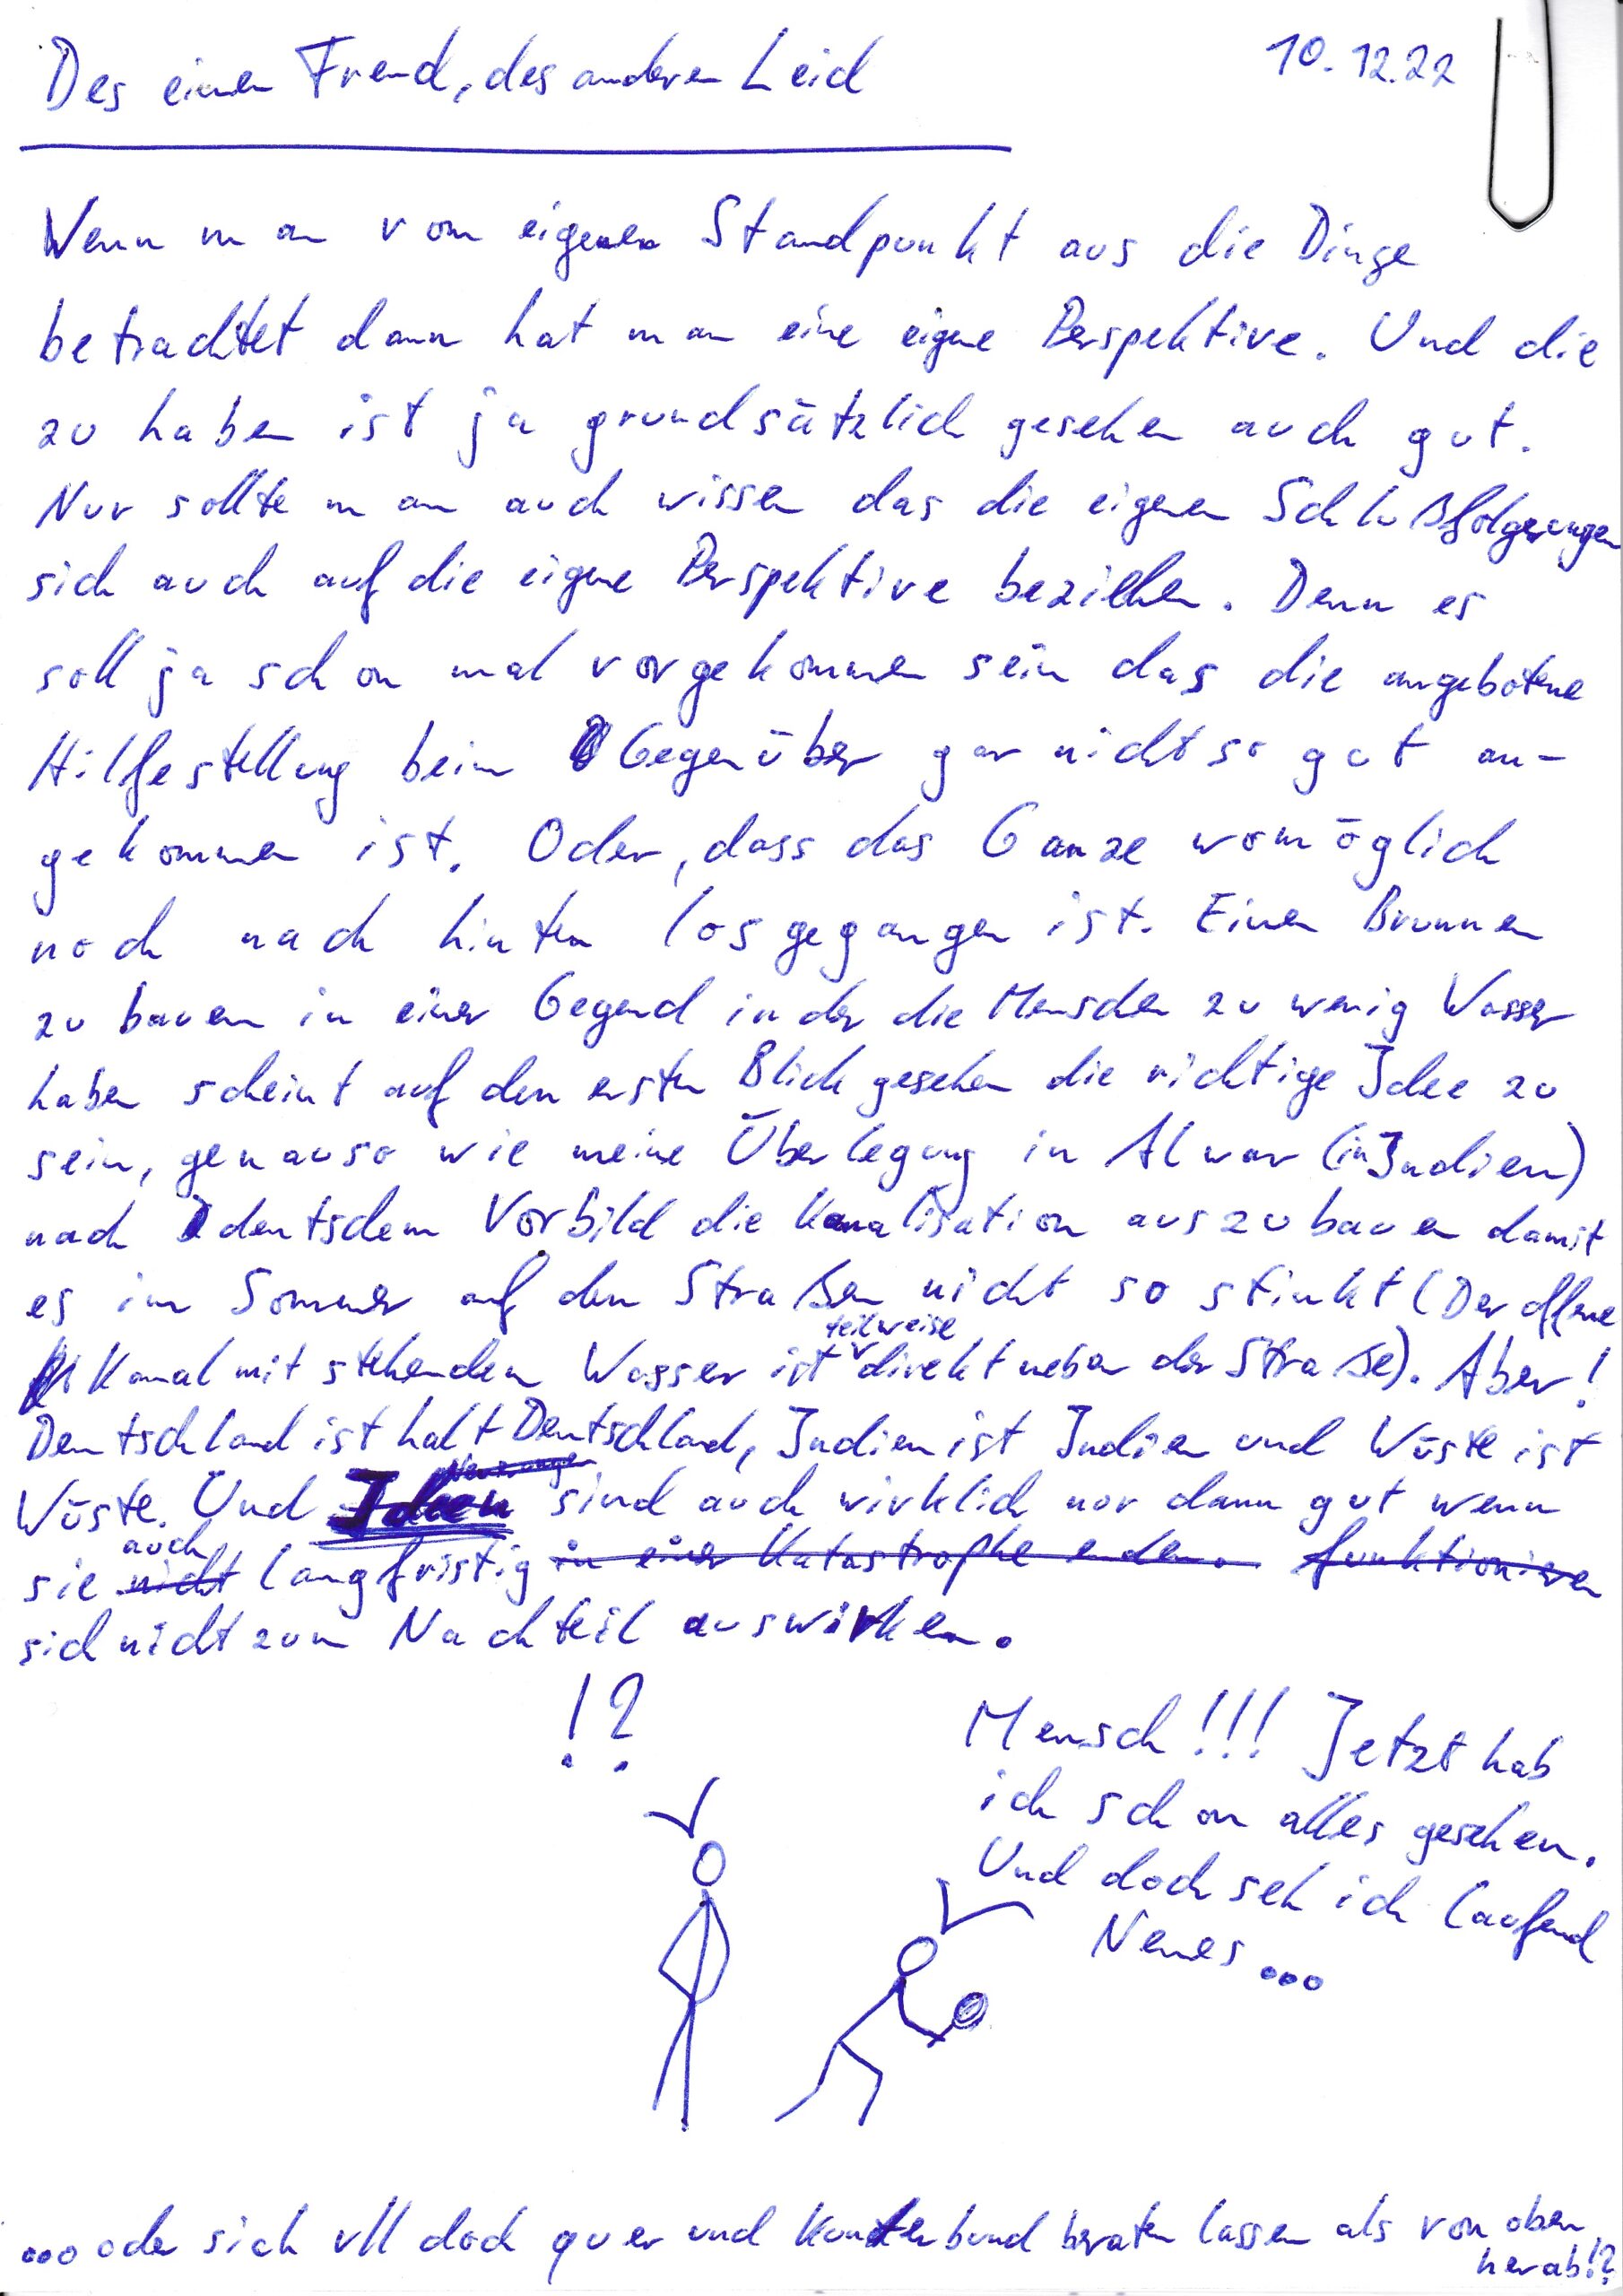 Des einen Freud, des anderen Leid
10.12.22
Wenn man vom eigenen Standpunkt aus die Dinge
betrachtet dann hat man eine eigene Perspektive. Und die
zu haben ist ja grundsätzlich gesehen auch gut.
Nur sollte man auch wissen das die eigenen Schlußfolgerungen
sich auch auf die eigene Perspektive beziehen. Denn es
soll ja schon mal vorgekommen sein das die angebotene
Hilfestellung beim Gegenüber gar nicht so gut an-
gekommen ist. Oder, dass das Ganze womöglich
noch nach hinten losgegangen ist. Einen Brunnen
zu bauen in einer Gegend in der die Menschen zu wenig Wasser
haben scheint auf den ersten Blick gesehen die richtige Idee zu
sein, genauso wie meine Überlegung in Alwar (in Indien)
nach deutschem Vorbild die Kanalisation auszubauen damit
es im Sommer auf den Straßen nicht so stinkt (Der offene
Kanal mit stehenden Wasser ist teilweise direkt neben der Straße). Aber!
Deutschland ist halt Deutschland, Indien ist Indien und Wüste ist
Wüste. Und Ideen sind auch wirklich nur dann gut wenn
sie nicht auch langfristig in einer Katastrophe enden. funktionieren
sich nicht zum Nachteil auswirken.
!?
Mensch!!! Jetzt hab
ich schon alles gesehen.
Und doch seh ich laufend
Neues ...
... oder sich vll doch quer und kunterbund beraten lassen als von oben
herab!?